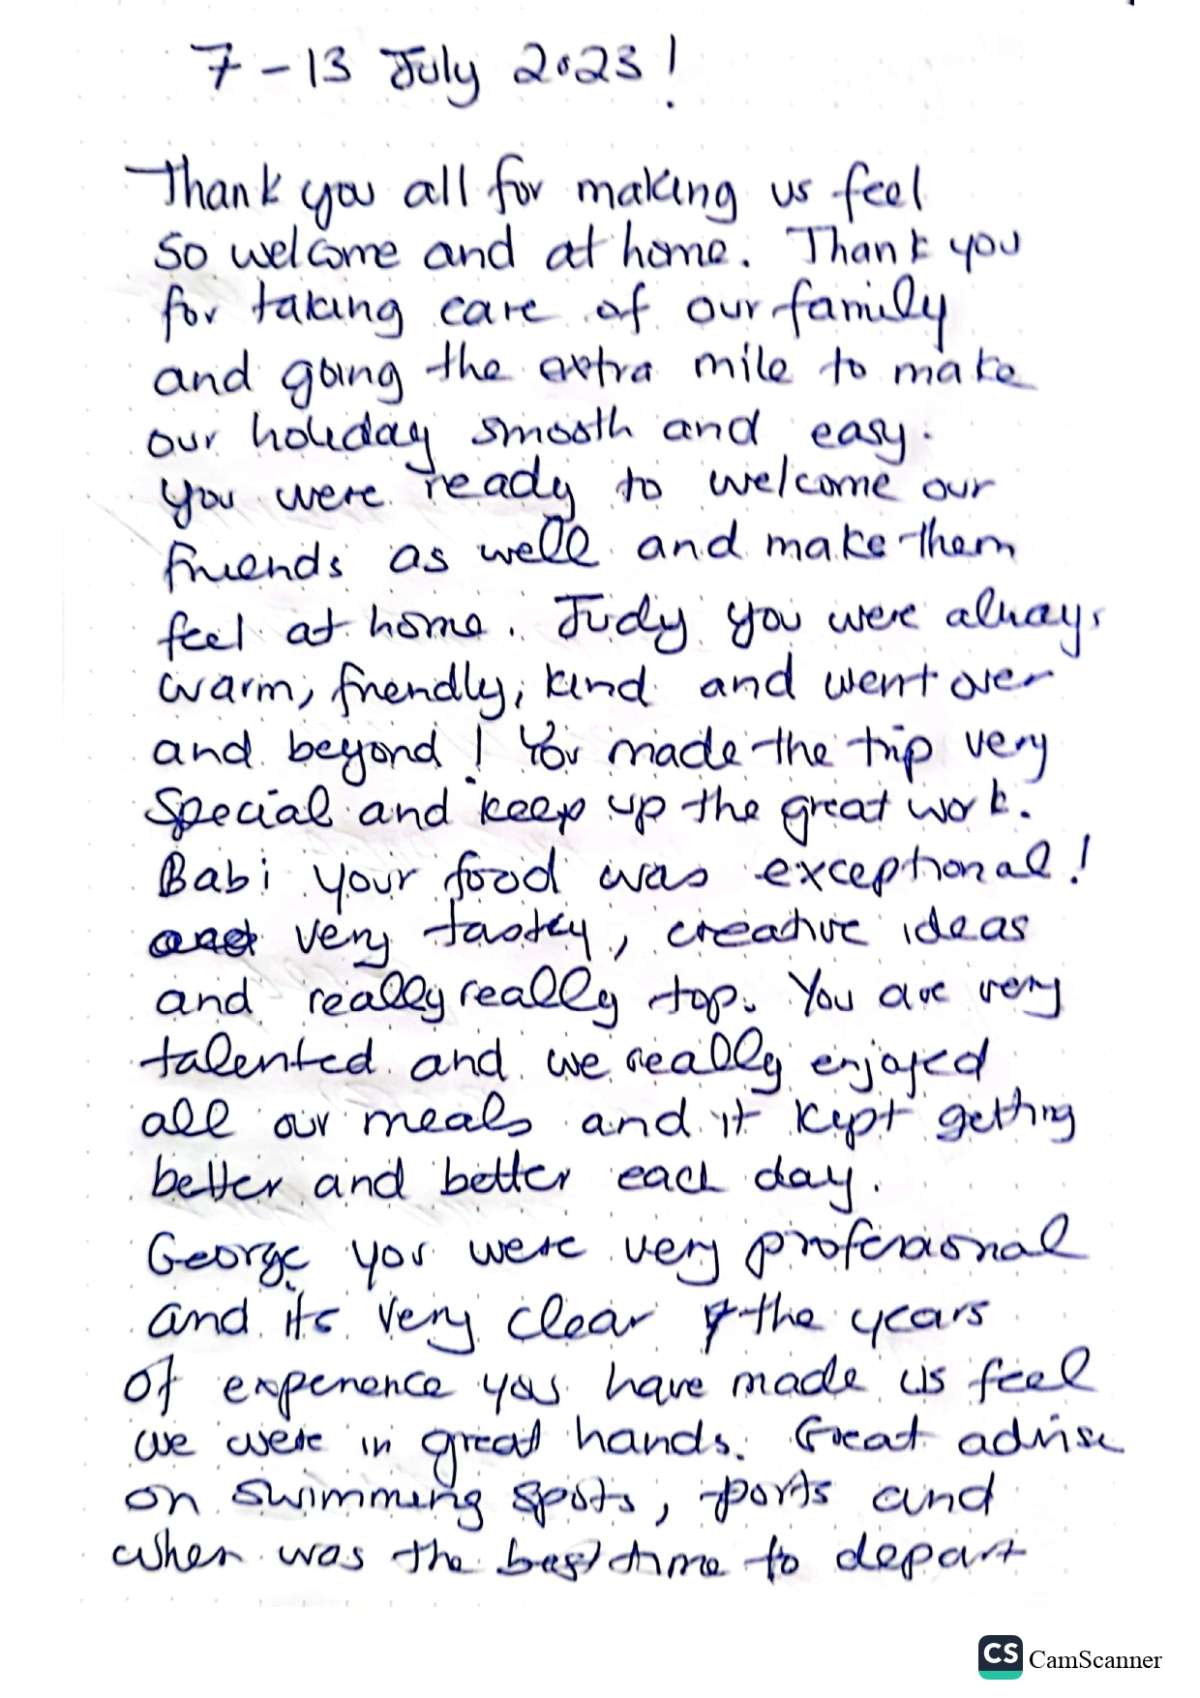 7 - 13 July 2023!
Thank you all for making us feel
so welcome and at home. Thank you
for taking care of our family
and going the extra mile to make
our holiday smooth and easy.
You were ready to welcome our
friends as well and make them
feel at home. Judy you were always
warm, friendly, kind and went over
and beyond! You made the trip very
special and keep up the great work.
Babi your food was exceptional!
very tasty, creative ideas
and really really top. You are very
talented and we really enjoyed
all our meals and it kept getting
better and better each day.
George you were very professional
and its very clear the years
of experience you have made us feel
we were in great hands. Great advise
on swimming spots, ports and
when was the best time to depart
CS CamScanner